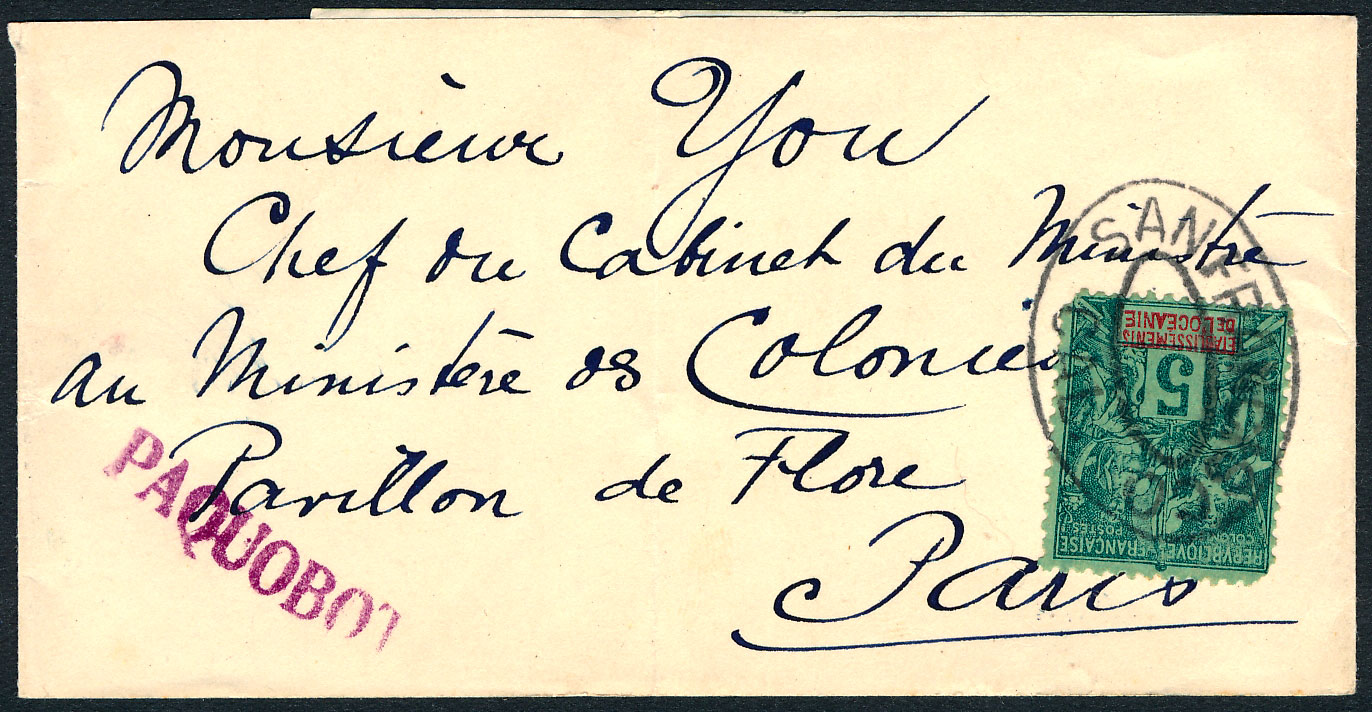 Monsieur You
Chef du Cabinet du Ministre
au Ministère des Colonies
Pavillon de Flore
Paris
PAQUOBOT
SAN FRANCISCO
CAL
ETABLISSEMENTS
DE L'OCÉANIE
5
REPVBLIQVE FRANÇAISE
COLONIES POSTES